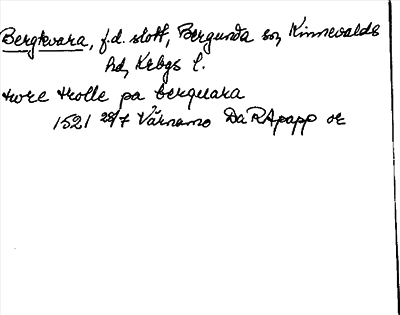 Bergkvara, f.d. slott, Bergunda sn, Kinnevalds
hd, Krbgs l.
ture trolle pa berquara
1521 28/7 Värnamo Da RA papp or